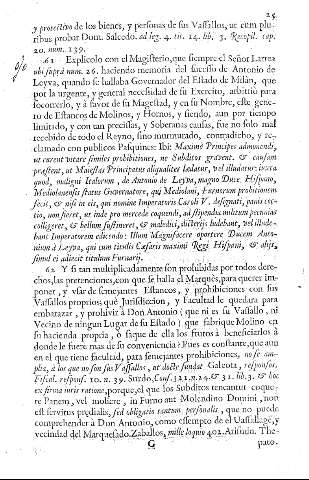 25
y protectivo de los bienes, y personas de sus Vassallos, ut cum pluribus probat Dom. Salcedo. ad leg. 4. tit. 14. lib. 3. Recopil. cap.
20. num. 139.
61 Explicolo con el Magisterio, que siempre el Señor Larrea
ubi suprà num. 26. haziendo memoria del sucesso de Antonio de
Leyva, quando se hallaba Governador del Estado de Milàn, que
por la urgente, y general necessidad de su Exercito, arbitriò para
socorrerlo, y à favor de su Magestad, y en su Nombre, este genero
de Estancos de Molinos, y Hornos, y siendo, aun por tiempo
limitado, y con tan precissas, y Soberanas causas, fue no solo mal
recebido de todo el Reyno, sino murmurado, contradicho, y reclamado
con publicos Pasquines: Ibi: Maximè Principes admonendi,
ut curent vitare similes prohibitiones, ne Subditos gravent. & causam
præstent, ut Maiestas Principatus aliqualiter lædatur, vel illudatur: iuxta
quod, maligni Italorum, de Antonio de Leyva, magno Duce Hispano,
Mediolanensis status Governatore, qui Mediolani, Furnorum prohibitionem
fecit, & nisi in eis, qui nomine Imperatoris Caroli V. designati, panis coctio,
non fieret, ut inde pro mercede coquendi, ad stipendia militum pecunias
colligeret, & bellum sustineret, & malediis, dicterijs ludebant, vel illudebant
Imperatorem edicendo: Illum Magnificere oportere Ducem Antonium
à Leyva, qui cum titulis Cæsaris maximi Regi Hispani, & alijs,
simul ei adiecit titulum Furnarij.
62 Y si tan multiplicadamente son prohibidas por todos derechos,
las pretenciones, con que se halla el Marquès, para querer imponer,
y usar de semejantes Estancos, y prohibiciones con sus
Vassallos proprios; què Jurisdiccion, y Facultad le quedarà para
embarazar, y prohivir à Don Antonio ( que ni es su Vassallo, ni
Vecino de ningun Lugar de su Estado ) que fabrique Molino en
su hacienda propria, ò saque de ella los frutos à beneficiarlos à
donde le fuere mas de su conveniencia? Pues es constante, que aun
en el que tiene facultad, para semejantes prohibiciones, no se amplia,
à los que no son sus Vassallos, ut dicti fundat Galeota, responsor.
Fiscal. respons. 10. n. 39. Surdo, Cons. 321. n. 24. & 31. lib. 3. & hoc
ex firma iuris ratione, porque, el que los Subditos tenentur coquere
Panem, vel moliere, in Furno aut Molendino Domini, non
est servitus prædialis, sed obligatio tantum personalis, que no puede
comprehender à Don Antonio, como essempto de el Vassallage, y
vecindad del Marquesado. Zaballos, mille loquio 402. Aristim. The-
G pato.